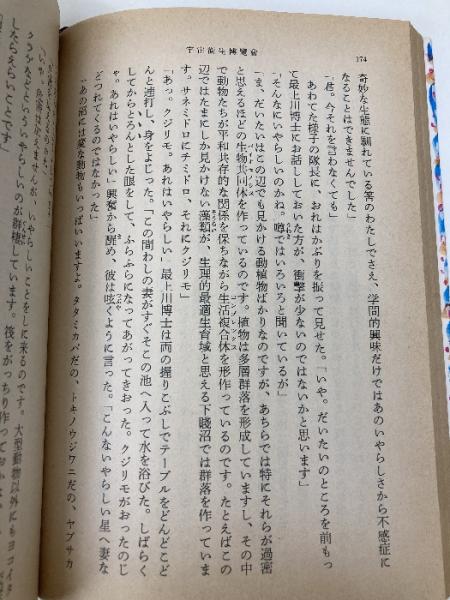 宇宙衛生博覧會
174
奇妙な生態に馴れている筈のわたしでさえ、学問的興味だけではあのいやらしさから不感症に
なることはできませんでした」
「君。今それを言わなくても」
あわてた様子の隊長に、おれはかぶりを振って見せた。「いや。だいたいのところを前もっ
て最上川博士にお話ししておいた方が、衝撃が少ないのではないかと思います」
「そんなにいやらしいのかね。噂ではいろいろと聞いているが」
「ま、だいたいはこの辺でも見かける動植物ばかりなのですが、あちらでは特にそれらが過密
と思えるほどの生物共同体を作っているのです。植物は多層群落を形成していますし、その中
で動物たちが平和共存的な関係を保ちながら生活複合体を形作っているのです。たとえばこの
辺ではたまにしか見かけない藻類が、生理的最適生育域と思える下賤沼では群落を作っていま
す。サネモダにチミドロ、それにクジリモ」
「あっ。クジリモ。あれはいやらしい」最上川博士は両の握りこぶしでテーブルをどんどこど
んと連打し、身をよじった。「この間わしの妻がすぐそこの池へ入って水を浴びた。しばらく
してからとろんとした眼をして、ふらふらになってあがってきおった。クジリモがおったのじ
ゃ。あれはいやらしい」興奮から醒め、彼は呟くように言った。「こんないやらしい星へ妻な
どつれてくるのではなかった」
「あの沼には変な動物もいっぱいいますよ。タタミカバだの、トキノウジワニだの、ヤブサカ
「いや。魚滓は見えませんが、いやらしいことをしに来るのです。大型動物以外にもヨコイタ
クラゲなどという、いやらしいのが群棲しています。筏をがっちり作って
したらえらいことです」